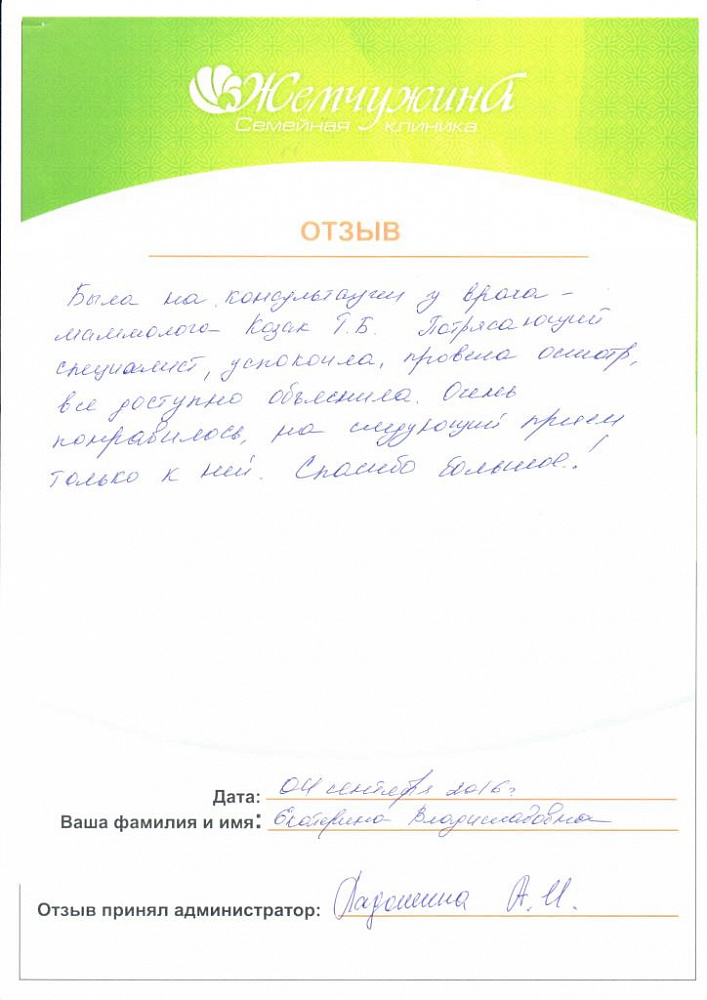 Жемчужина
Семейная клиника
ОТЗЫВ
Была на консультации у врача-
маммолога Козак Т.Б. Потрясающий
специалист, успокоила, провела осмотр,
все доступно объяснила. Очень
понравилось, на следующий прием
только к ней. Спасибо большое!
Дата: 04 сентября 2016 г
Ваша фамилия и имя: Екатерина Владиславовна
Отзыв принял администратор: А.И.